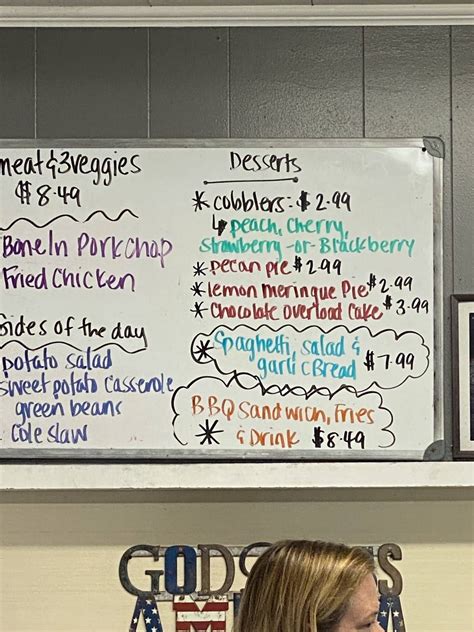 meat & 3 veggies
$8.49
Bone In Pork Chop
Fried Chicken
Sides of the day
potato salad
sweet potato Casserole
green beans
cole slaw
Desserts
* cobblers: $2.99
↳ peach, Cherry,
Strawberry -or- Blackberry
* pecan pie $2.99
* lemon Meringue Pie $2.99
* Chocolate overload Cake $3.99
* Spaghetti, salad &
garlic Bread $7.99
BBQ Sandwich, Fries
* & Drink $8.49
GOD